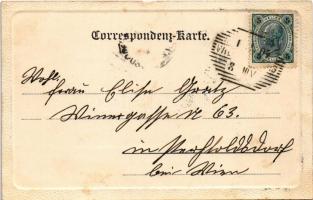 Correspondenz-Karte.
Wohl.
Frau Elise Gratz
Wienergasse N 63.
in Perchtoldsdorf
bei Wien